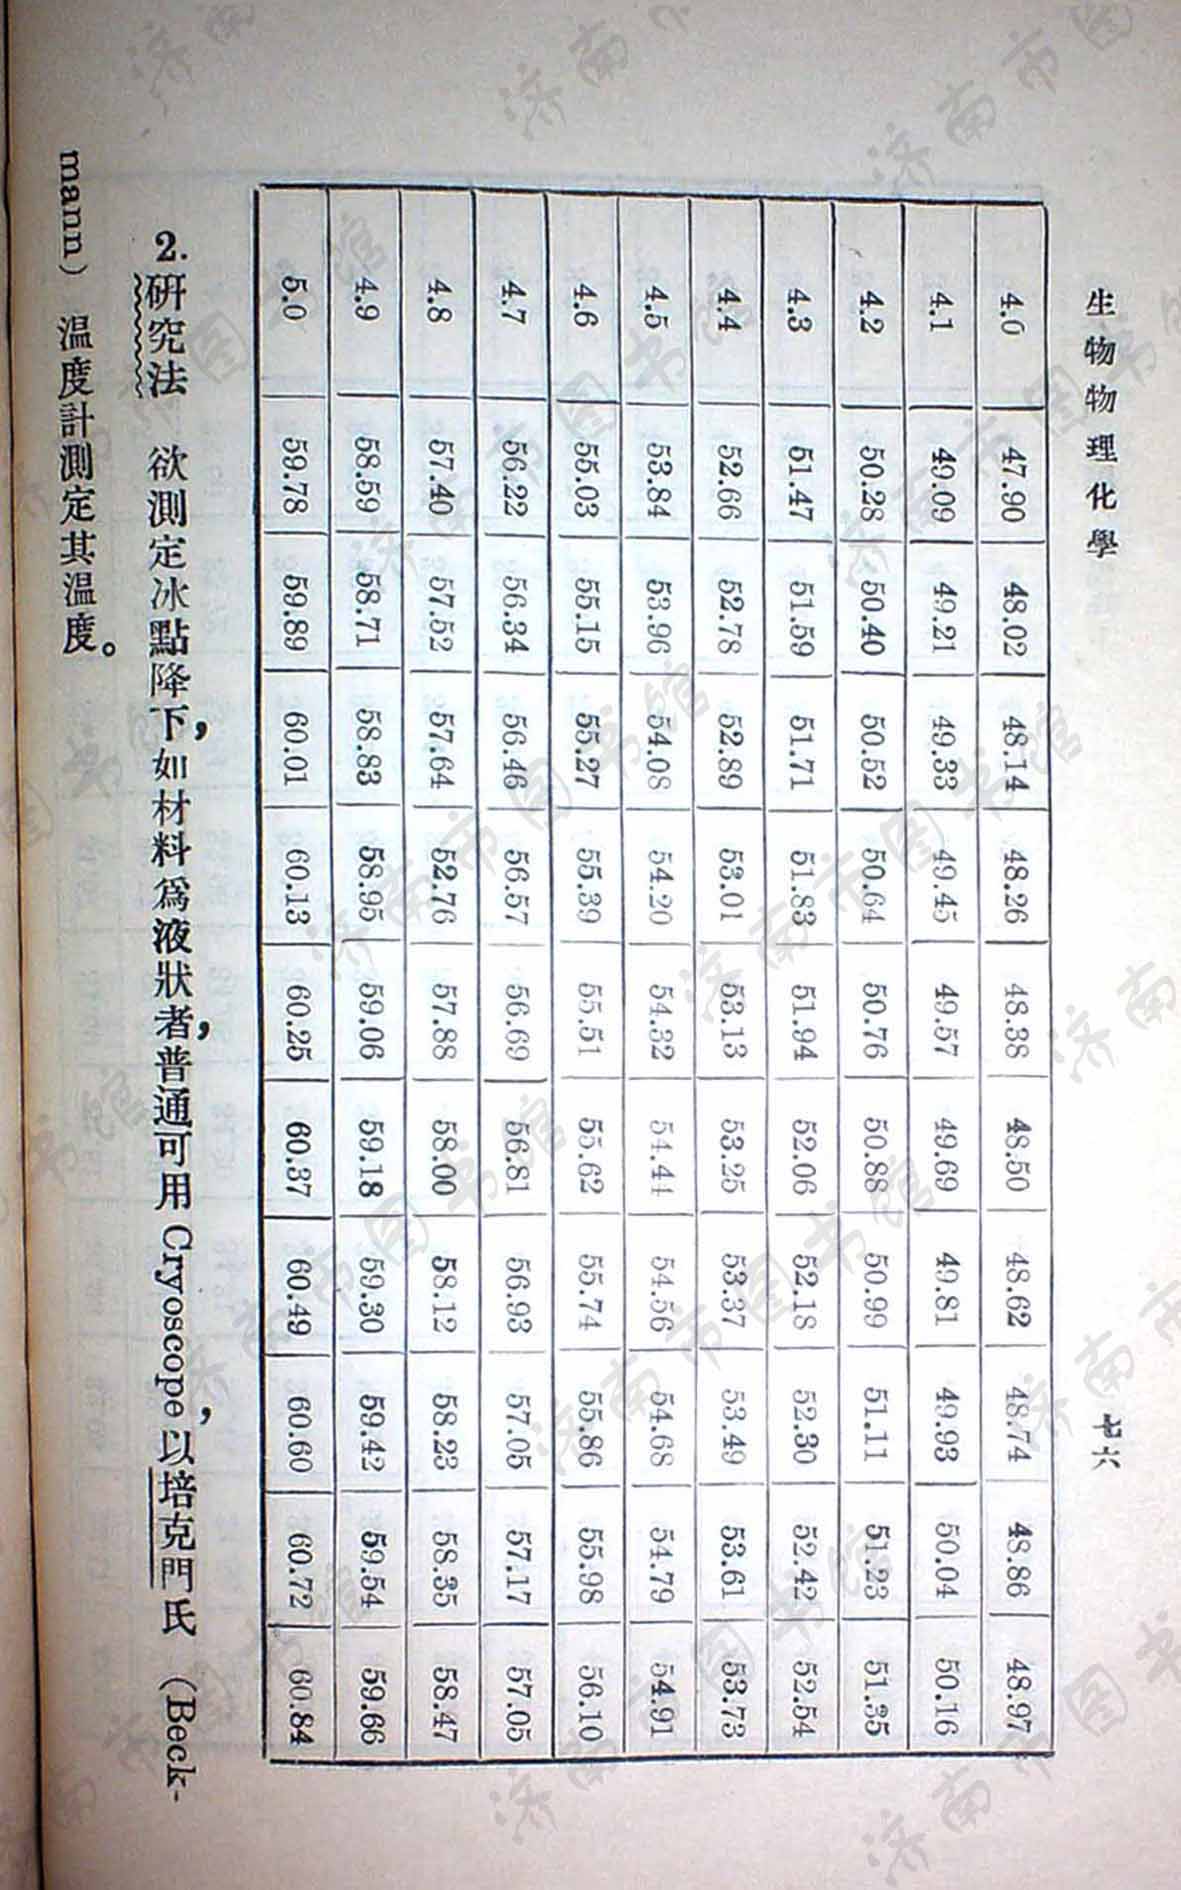 生物物理化學
4.0 47.90 48.02 48.14 48.26 48.38 48.50 48.62 48.74 48.86 48.97
4.1 49.09 49.21 49.33 49.45 49.57 49.69 49.81 49.93 50.04 50.16
4.2 50.28 50.40 50.52 50.64 50.76 50.88 50.99 51.11 51.23 51.35
4.3 51.47 51.59 51.71 51.83 51.94 52.06 52.18 52.30 52.42 52.54
4.4 52.66 52.78 52.89 53.01 53.13 53.25 53.37 53.49 53.61 53.73
4.5 53.84 53.96 54.08 54.20 54.32 54.44 54.56 54.68 54.79 54.91
4.6 55.03 55.15 55.27 55.39 55.51 55.62 55.74 55.86 55.98 56.10
4.7 56.22 56.34 56.46 56.57 56.69 56.81 56.93 57.05 57.17 57.05
4.8 57.40 57.52 57.64 52.76 57.88 58.00 58.12 58.23 58.35 58.47
4.9 58.59 58.71 58.83 58.95 59.06 59.18 59.30 59.42 59.54 59.66
5.0 59.78 59.89 60.01 60.13 60.25 60.37 60.49 60.60 60.72 60.84
2. 研究法 欲測定冰點降下，如材料爲液狀者，普通可用 Cryoscope，以培克門氏 (Beck-
mann) 温度計測定其温度。
济南市图书馆